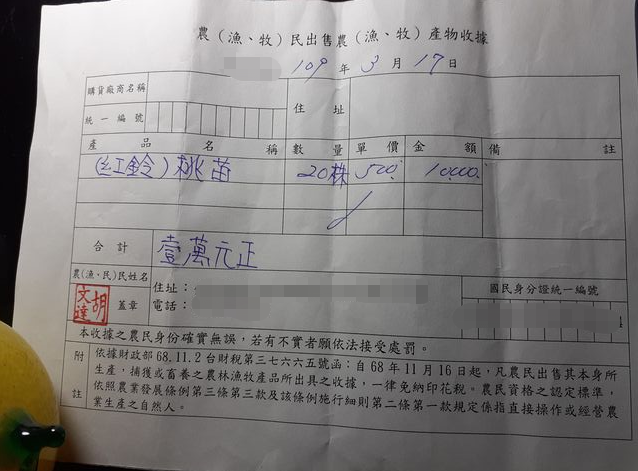 農（漁、牧）民出售農（漁、牧）產物收據
109 年 3 月 17 日
購貨廠商名稱
住 址
統一編號
產 品 名 稱 數 量 單 價 金 額 備 註
(紅鈴)桃苗 20株 500. 10000.
合 計 壹萬元正
農(漁、民)民姓名
住址：
國民身分證統一編號
胡文達 蓋章
電話：
本收據之農民身份確實無誤，若有不實者願依法接受處罰。
附註
依據財政部 68.11.2 台財稅第三七六六五號函：自 68 年 11 月 16 日起，凡農民出售其本身所
生產，捕獲或畜養之農林漁牧產品所出具之收據，一律免納印花稅。農民資格之認定標準，
依照農業發展條例第三條第三款及該條例施行細則第二條第一款規定係指直接操作或經營農
業生產之自然人。